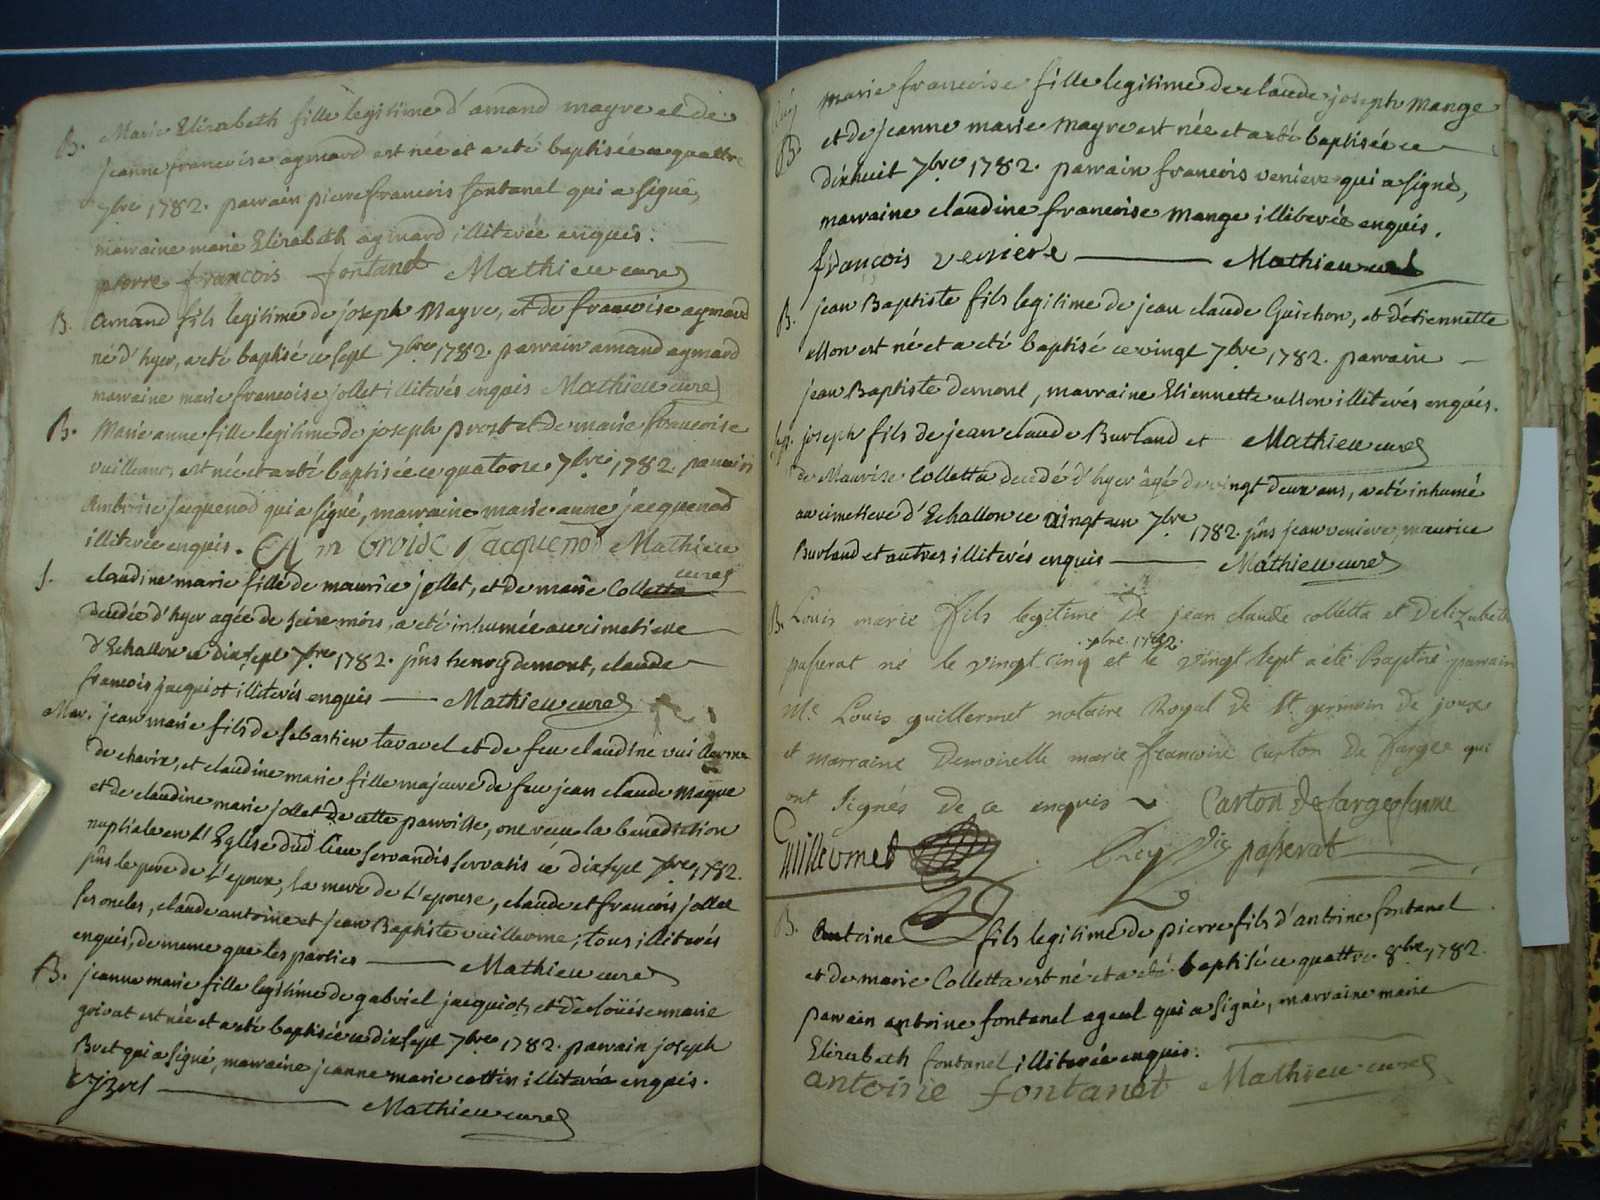 B. Marie Elizabeth fille legitime d'amand mayre et de
jeanne francoise aymard est née et a eté baptisée ce quattre
7bre 1782. parrain pierre francois fontanel qui a signé,
marraine marie Elizabeth aymard illiterée enquis.
pierre francois fontanel Mathieu curé
B. Amand fils legitime de joseph Mayre, et de francoise aymard
né d'hyer, a eté baptisé ce sept 7bre 1782. parrain amand aymard
marraine marie francoise jollet illiterés enquis Mathieu curé
B. Marie anne fille legitime de joseph prost et de marie francoise
vuillerme, est née et a eté baptisée ce quatorse 7bre 1782. parrain
Ambroise jacquenod qui a signé, marraine marie anne jacquenod
illiterée enquis. Am broise Jacquenod Mathieu
curé
S. claudine marie fille de maurice jollet, et de marie Colletta
decedée d'hyer agée de seize mois, a eté inhumée au cimetiere
d'Echallon ce dixsept 7bre 1782. pns henry demont, claude
francois jacquiot illiterés enquis Mathieu curé
Mar. jean marie fils de sebastien tavavel et de feu claudine vuillerme
de chavix, et claudine marie fille majeure de feu jean claude Mayre
et de claudine marie jollet de cette parroisse, ont receu la benediction
nuptiale en L'Eglise dud lieu servandis servatis ce dixsept 7bre 1782.
pns le pere de L'epoux, la mere de L'epouse, claude et francois jollet
ses oncles, claude antoine et jean Baptiste vuillerme; tous illiterés
enquis, de meme que les parties Mathieu curé
B. jeanne marie fille legitime de gabriel jacquiot, et de loüise marie
grivat est née et a eté baptisée ce dixsept 7bre 1782. parrain joseph
Buet qui a signé, marraine jeanne marie cottin illiterée enquis.
Mathieu curé
marie francoise fille legitime de claude joseph Mange
B. et de jeanne marie Mayre est née et a eté baptisée ce
dixhuit 7bre 1782. parrain francois veniere qui a signé,
marraine claudine francoise Mange illiterée enquis.
françois veniere Mathieu curé
B. jean Baptiste fils legitime de jean claude Guichon, et d'etiennette
est né et a eté baptisé ce vingt 7bre 1782. parrain
jean Baptiste demont, marraine Etiennette illiterés enquis.
joseph fils de jean claude Burland et Mathieu curé
de Maurise Colletta decedé d'hyer agé de vingt deux ans, a eté inhumé
au cimetiere d'Echallon ce vingt un 7bre 1782. pns jean veniere, maurice
Burland et autres illiterés enquis Mathieu curé
B. Louis marie fils legitime de jean claude colletta et delizabeth
7bre 1782.
passerat né le vingt cinq et le vingt sept a été Baptisé parrain
Me Louis guillermet notaire Royal de St germain de joux
et marraine Demoiselle marie francoise carton de farges qui
ont signés de ce enquis Carton de farges
Guillermet passerat
B. Antoine fils legitime de pierre fils d'antoine fontanel
et de marie Colletta est né et a eté baptisé ce quattre 8bre 1782.
parrain antoine fontanel ayeul qui a signé, marraine marie
Elizabeth fontanel illiterée enquis.
antoine fontanel Mathieu curé